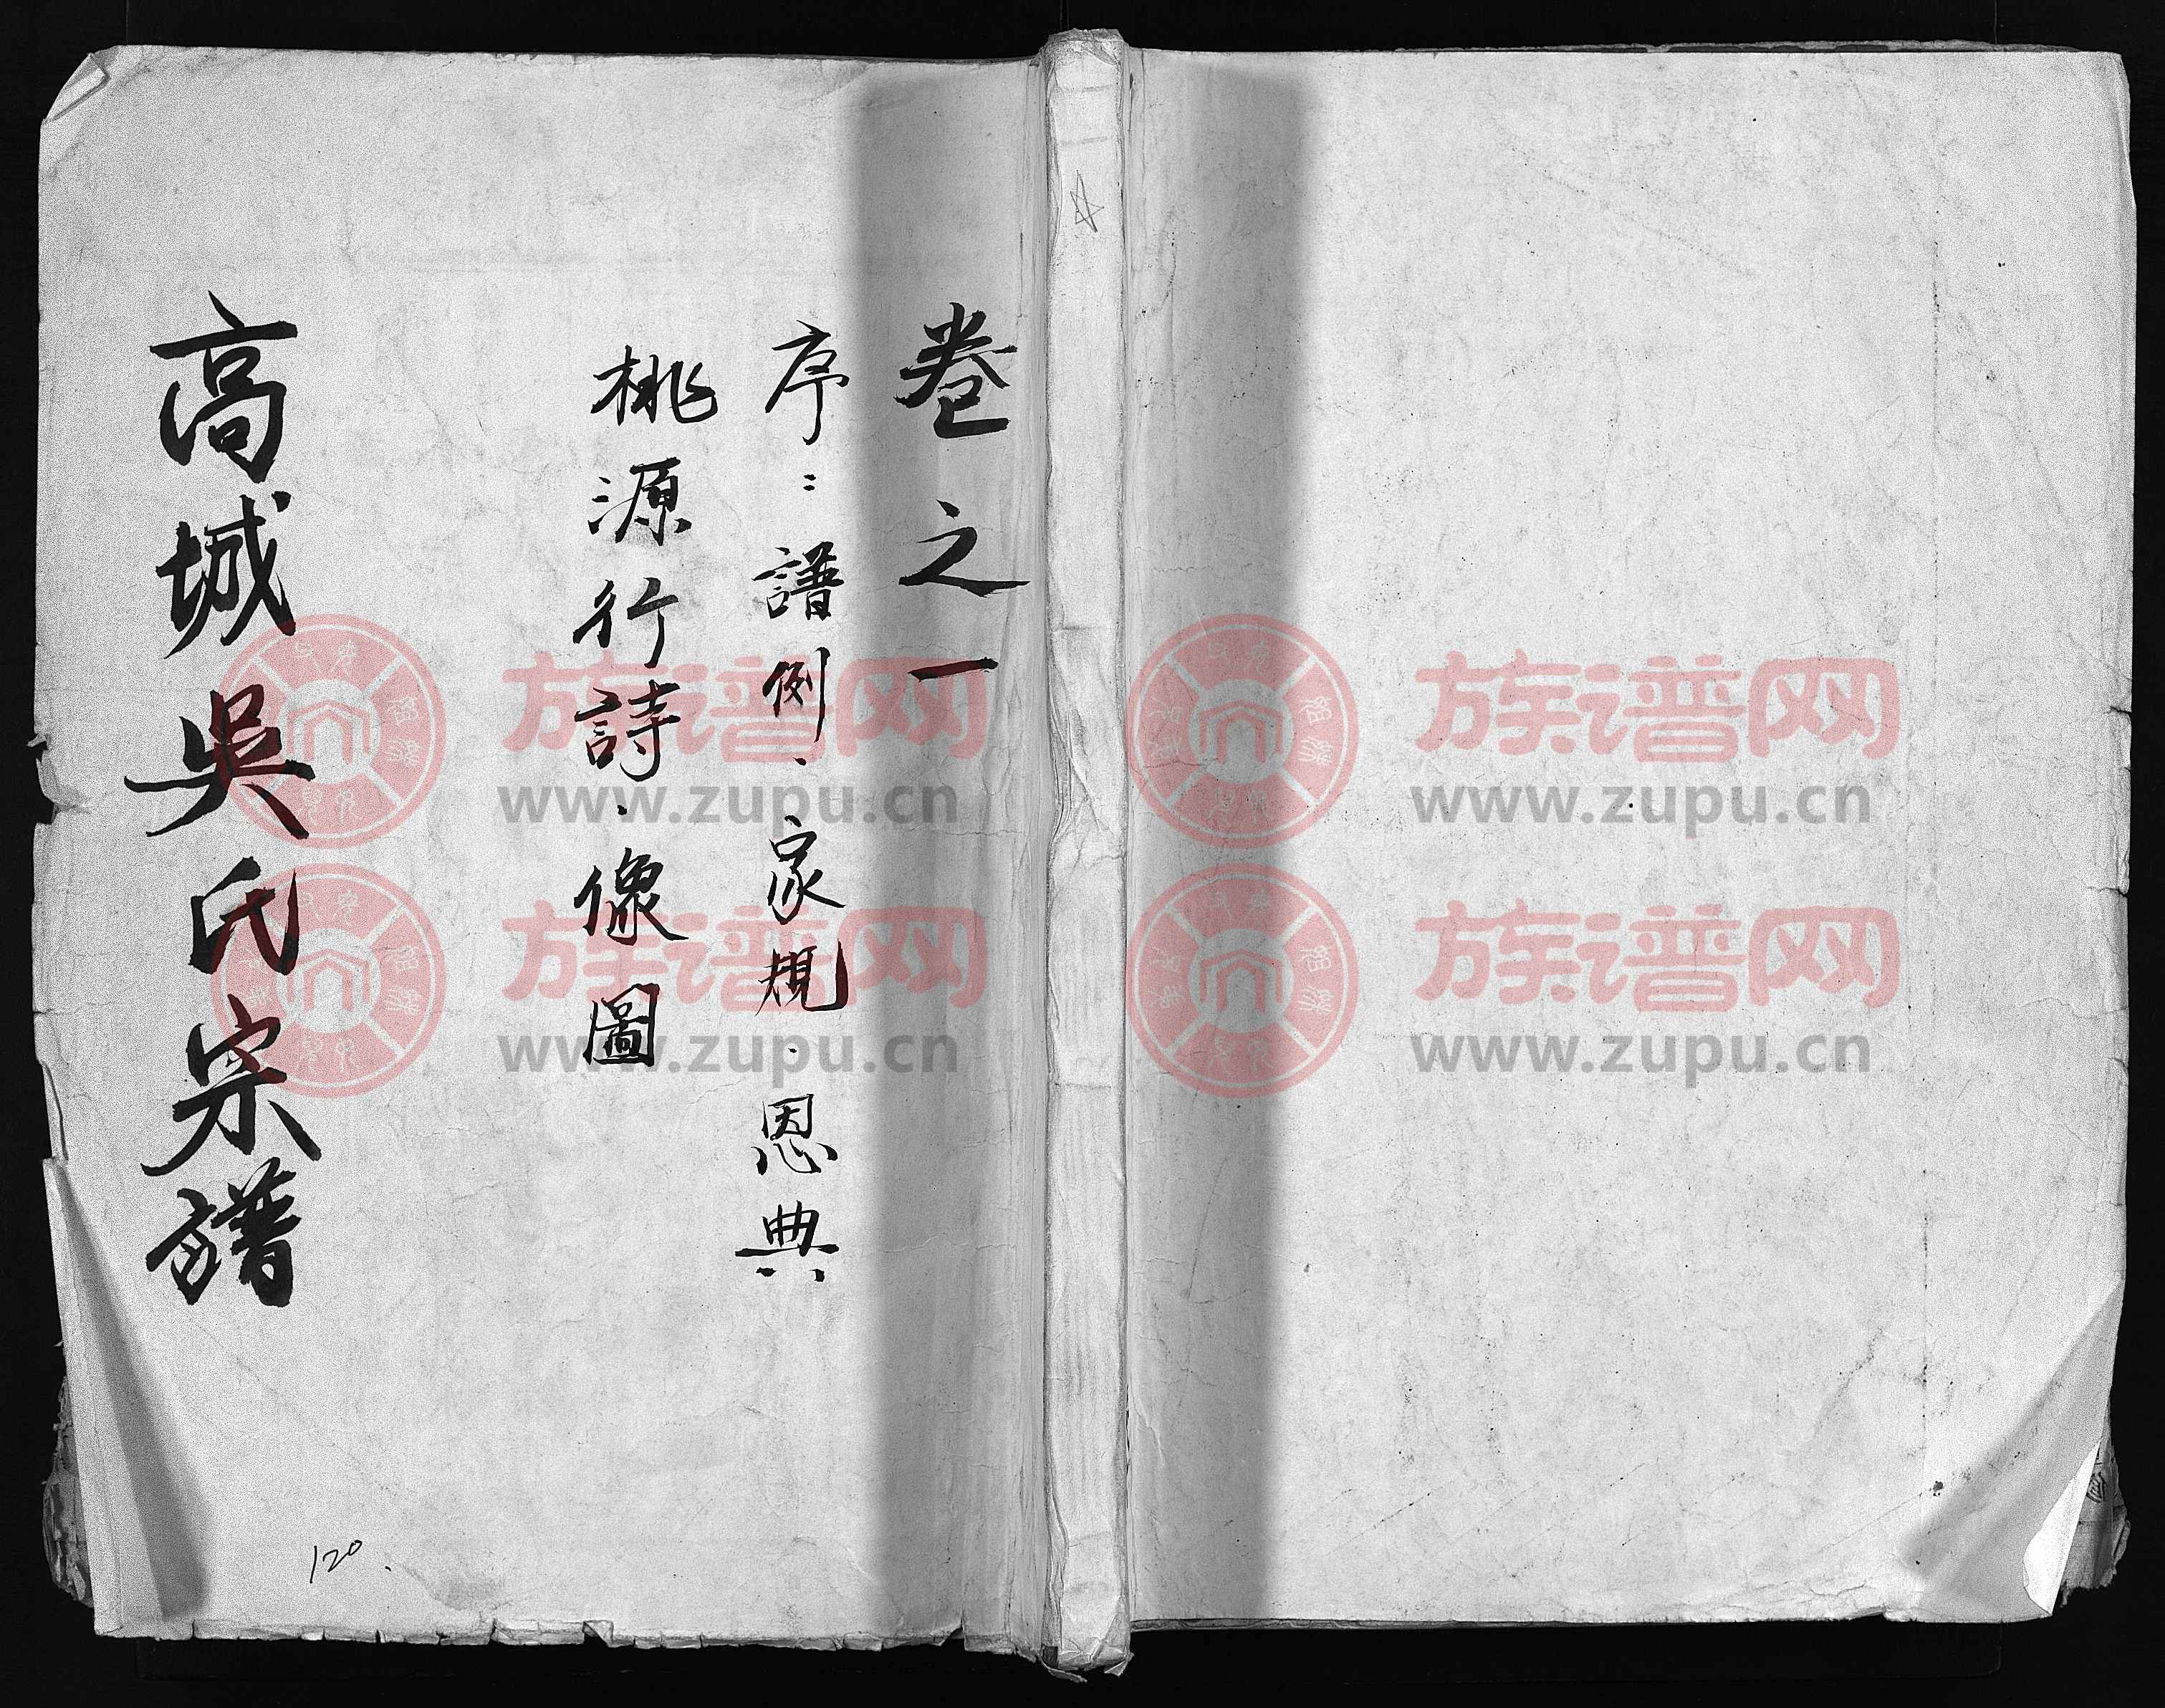 卷之一
序：譜例．家規．恩典
桃源行詩．像圖
高城吳氏宗譜
120
族谱网
www.zupu.cn
族谱网
www.zupu.cn
族谱网
www.zupu.cn
族谱网
www.zupu.cn